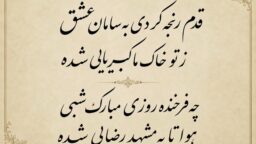 قدم رنجه کردی به سامان عشق
ز تو خاک ما کبریایی شده
چه فرخنده روزی مبارک شبی
هوا تا به مشهد رضایی شده